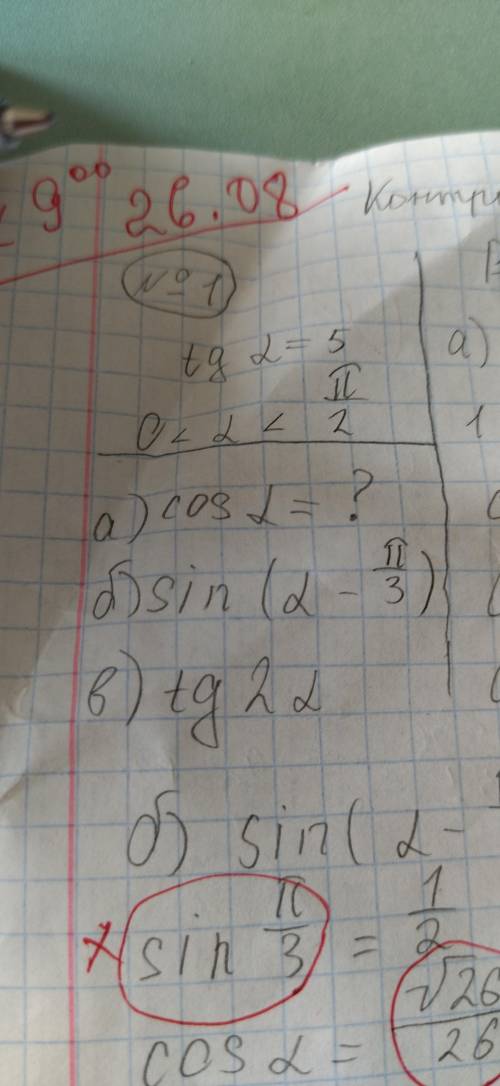 9⁰⁰ 26.08
№1
tg α = 5
0 < α < π/2
а)
1
а) cos α = ?
б) sin (α - π/3)
в) tg 2α
б) sin( α -
× sin π/3 = 1/2
cos α = √26/26